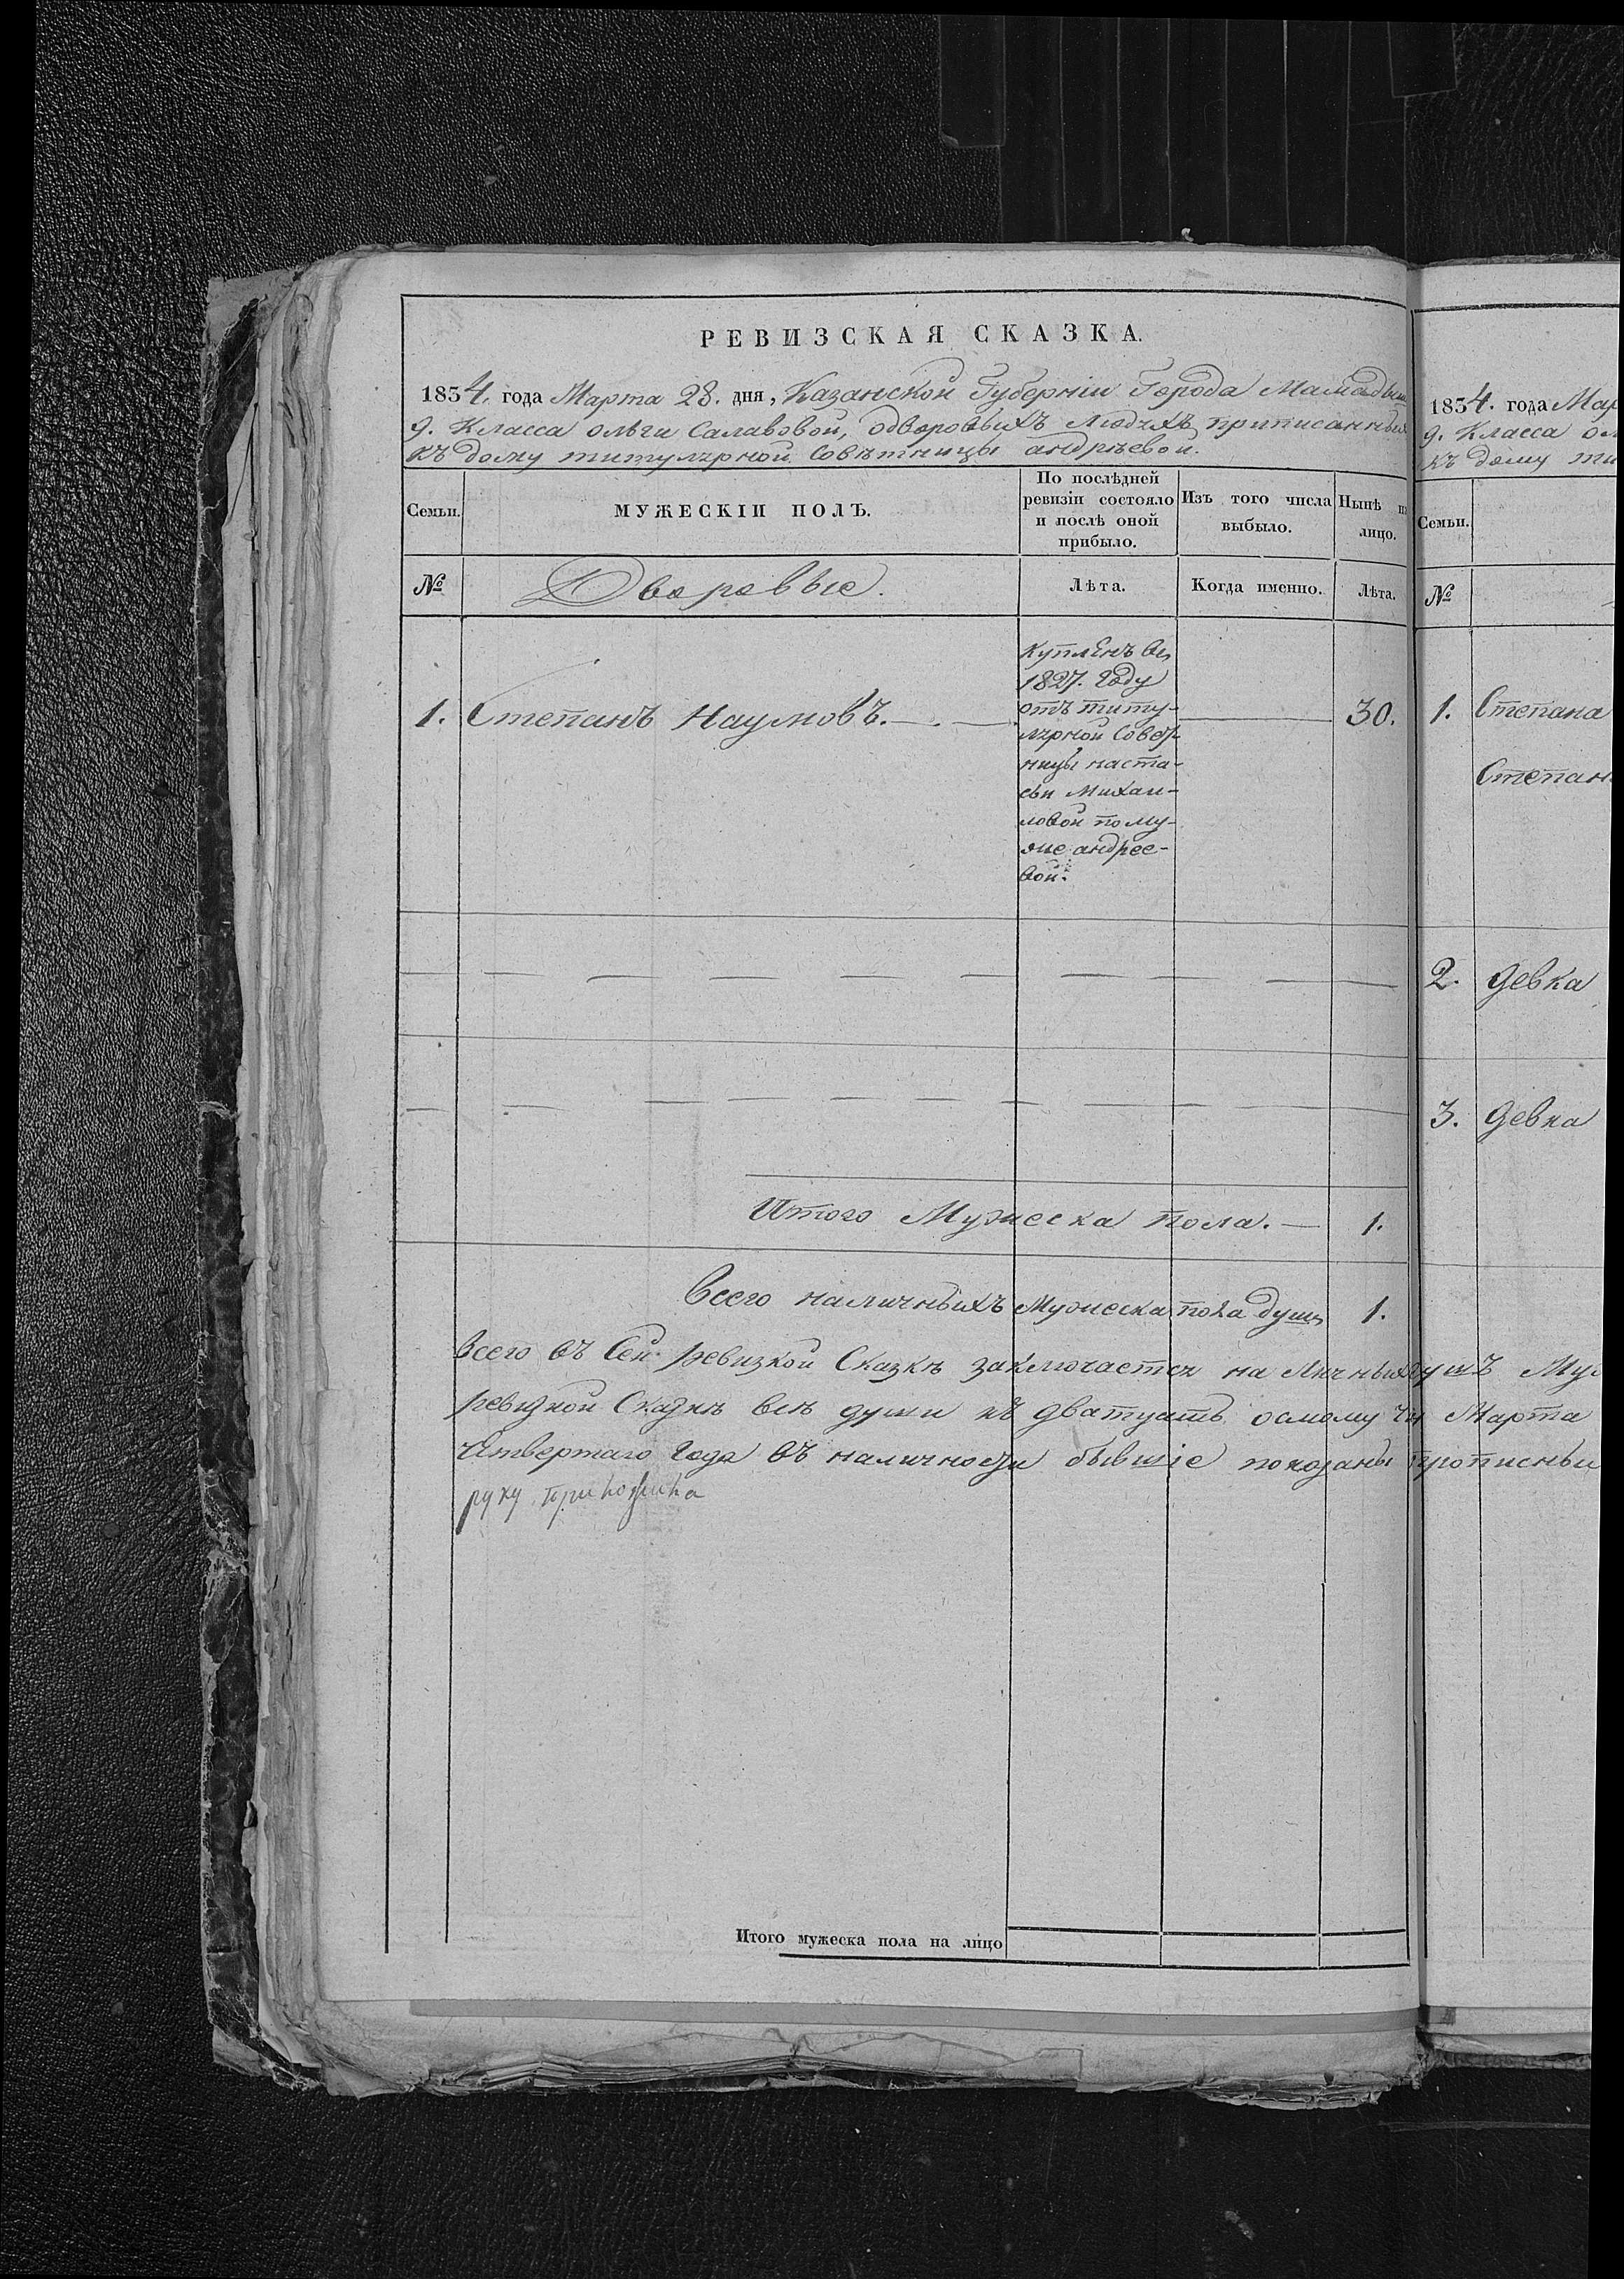 РЕВИЗСКАЯ СКАЗКА.
1834. года Марта 28. дня, Казанской Губерніи Города Мамадыш
9. Класса ольги Салавовой, одворовыхъ Людяхъ приписанных
къ дому титулярной Совѣтницы андрѣевой.
Семьи.
МУЖЕСКІЙ ПОЛЪ.
По послѣдней
ревизіи состояло
и послѣ оной
прибыло.
Изъ того числа
выбыло.
Нынѣ н
лицо.
№
Дворовые.
Лѣта.
Когда именно.
Лѣта.
1. Степанъ Наумовъ.
купленъ въ
1827. Году
отъ титу-
лярной Совет-
ницы наста-
сьи Михаи-
ловой по му-
же андрее-
вой.
30.
Итого Мужеска пола. — 1.
Всего наличныхъ мужеска пола душъ 1.
Всего въ Сей ревизкой Сказкѣ заключается на Личныхъ душъ Му
ревизкой Сказкѣ всѣ души къ дватцать осмому чи Марта
Четвертаго Года въ наличности бывшіе показаны прописны
руку приложила
Итого мужеска пола на лицо
1834. года Мар
9. Класса ол
къ дому ти
Семьи.
№
1. Степана
Степан
2. девка
3. девка